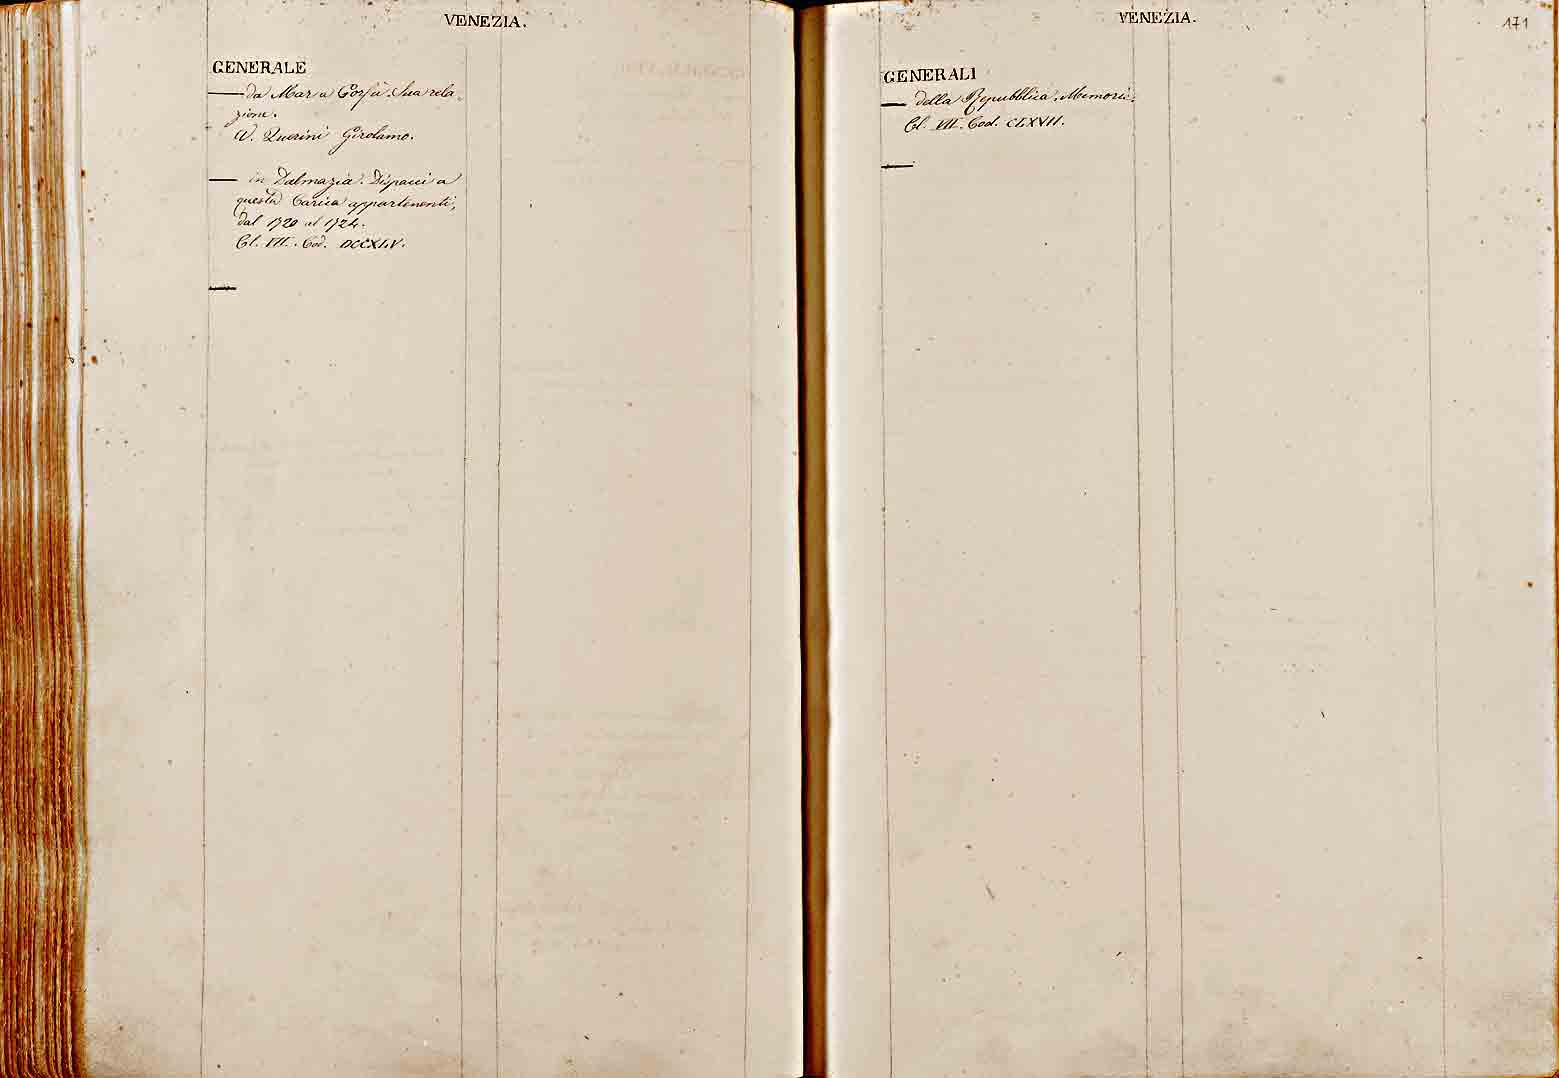 VENEZIA.
GENERALE
— da Mar a Corfù. Sua rela-
zione.
V. Querini Girolamo.
— in Dalmazia. Dispacci a
questa Carica appartenenti,
dal 1720 al 1724.
Cl. VII. Cod. DCCXLV.
VENEZIA.
171
GENERALI
— della Repubblica. Memorie.
Cl. VII. Cod. CLXVII.